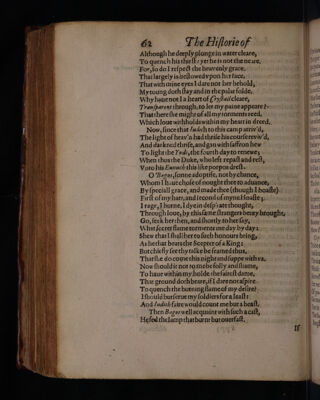 62 The Historie of
Although he deeply plonge in water cleare,
To quench his thirst: yet he is not the neare.
For, so do I respect the heauenly grace,
That largely is bestowed vpon her face,
That with mine eyes I dare not her behold,
My toung doth stay and in the palat folde.
Why haue not I a heart of Chrystal cleare,
Transparent through, to let my paine appeare?
That there she might of all my torments reed,
Which loue withholds within my heart in dreed.
Now, since that Iudith to this camp arriu'd,
The light of heau'n had thrise his course reuiu'd,
And darkned thrise, and gan with saffron hew
To light the Inds, the fourth day to renew:
When thus the Duke, who left repast and rest,
Vnto his Eunuch this like porpos drest.
O Bagos, sonne adoptife, not by chance,
Whom I haue chose of mought thee to aduance,
By speciall grace, and made thee (though I boaste)
First of my hart, and second of myne hoaste;
I rage, I burne, I dye in desprat thought,
Through loue, by this same strangers beuty brought.
Go, seek her then, and shortly to her say,
What secret flame torments me day by day:
Shew that I shal her to such honours bring,
As he that bears the Scepter of a King:
But chiefly see thy talke be framed thus,
That she do come this night and suppe with vs.
Now should it not to me be folly and shame,
To haue within my holde the fairest dame,
That ground doth beare, if I dare not aspire
To quench the burning flame of my desire?
I should but serue my soldiers for a least:
And Iudith faire would count me but a beast.
Then Bagos well acquaint with such a cast,
He fed the lamp that burnt but ouerfast.
If